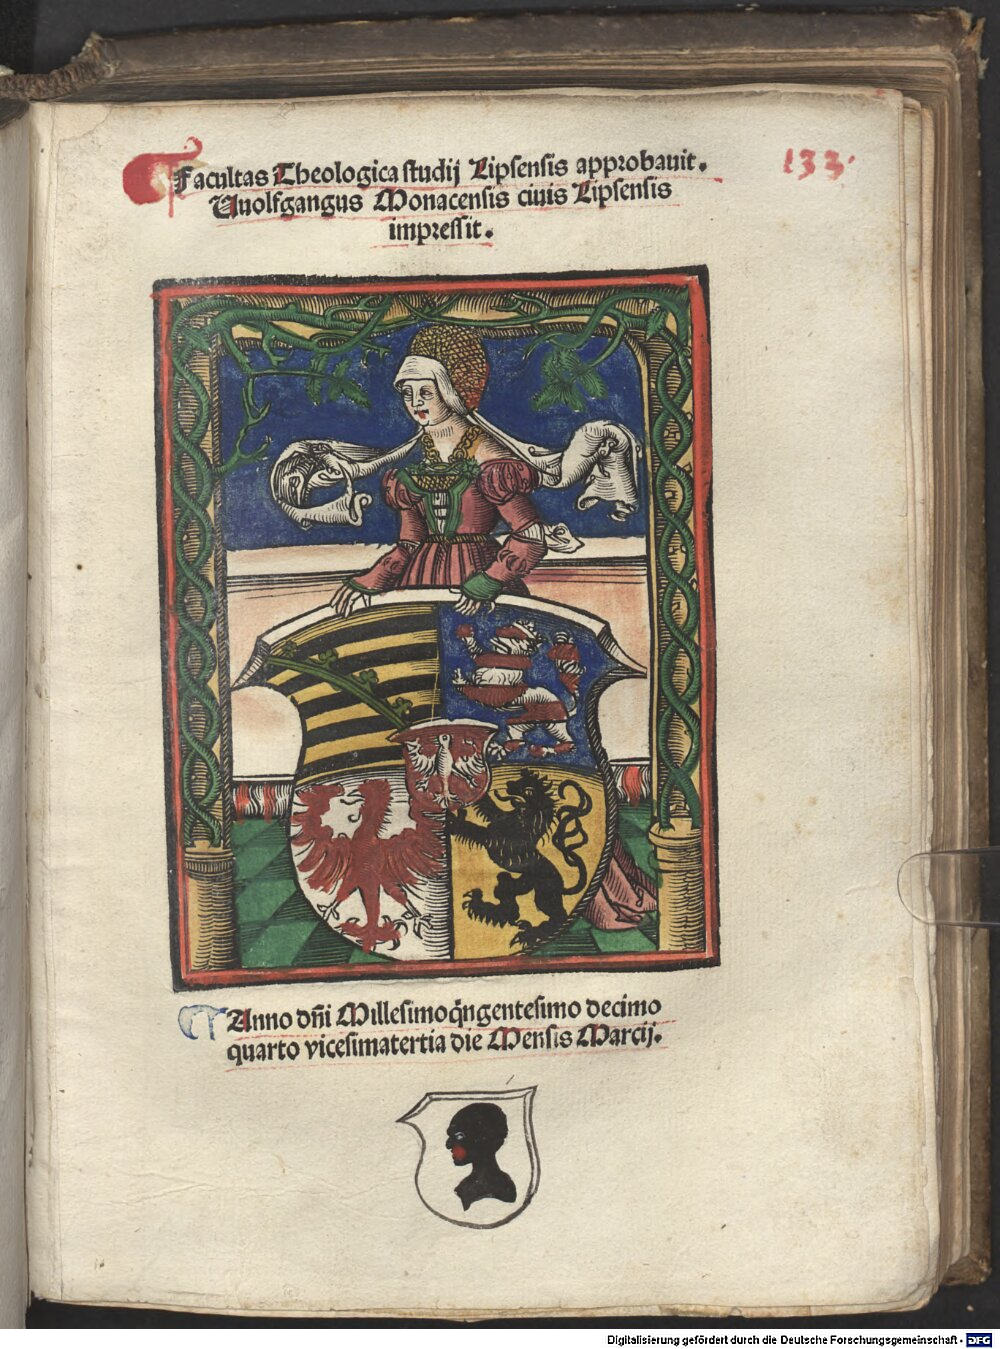 Facultas Theologica studij Lipsensis approbauit.
133.
Vuolfgangus Monacensis ciuis Lipsensis
impressit.
Anno dn̄i Millesimoq̄ngentesimo decimo
quarto vicesimatertia die Mensis Marcij.
Digitalisierung gefördert durch die Deutsche Forschungsgemeinschaft - DFG